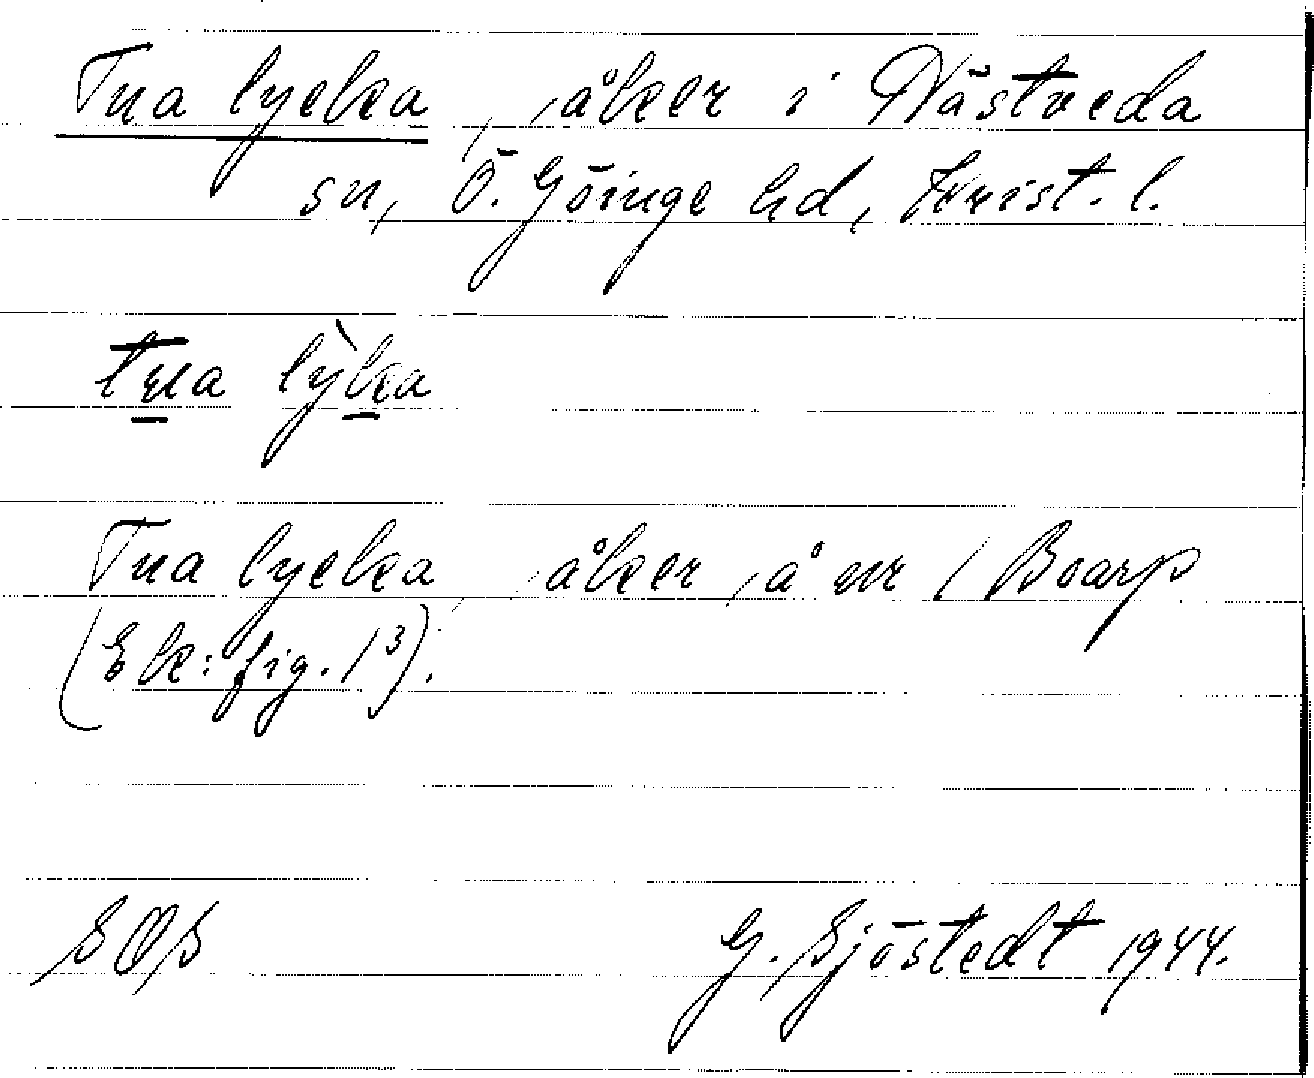 Tua lycka, åker i Nästveda
sn, Ö. Göinge hd, Krist. l.
tua lỳka
Tua lycka, åker å nr 1 Boarp
(Ek: fig. 1³).
SOS G. Sjöstedt 1944.